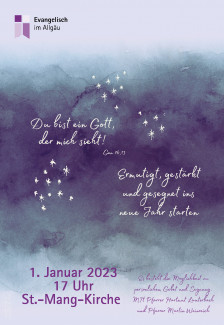 Evangelisch
im Allgäu
Du bist ein Gott,
der mich sieht!
Gen. 16,13
Ermutigt, gestärkt
und gesegnet ins
neue Jahr starten
1. Januar 2023
17 Uhr
St.-Mang-Kirche
Es besteht die Möglichkeit zu
persönlichem Gebet und Segnung
Mit Pfarrer Hartmut Lauterbach
und Pfarrer Martin Weinreich